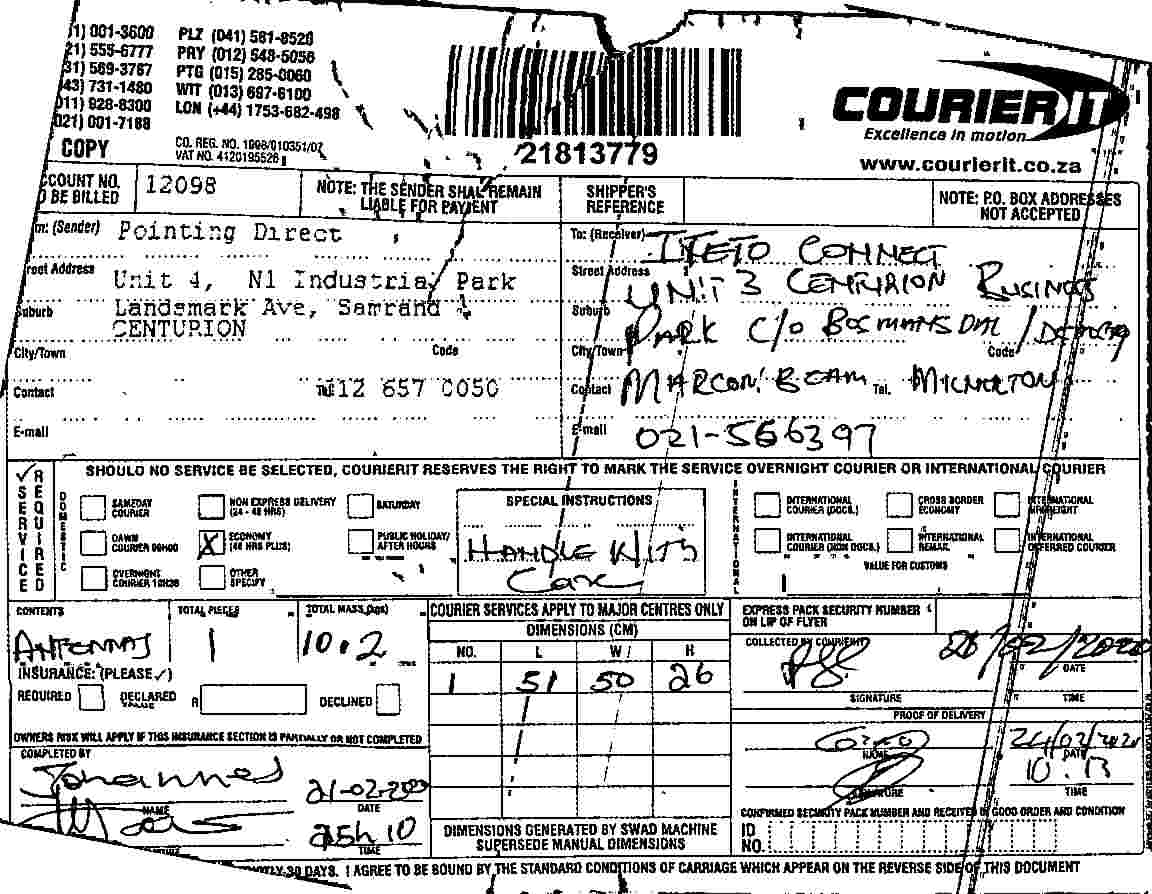 1) 001-3600 PLZ (041) 581-8520
21) 555-6777 PRY (012) 548-5056
31) 569-3767 PTG (015) 285-0060
43) 731-1480 WIT (013) 697-6100
011) 928-8300 LON (+44) 1753-682-498
021) 001-7188
COPY
CO. REG. NO. 1998/010351/07
VAT NO. 4120195526
21813779
COURIER IT
Excellence in motion
www.courierit.co.za
CCOUNT NO.
O BE BILLED
12098
NOTE: THE SENDER SHAL REMAIN
LIABLE FOR PAYMENT
SHIPPER'S
REFERENCE
NOTE: P.O. BOX ADDRESSES
NOT ACCEPTED
(Sender) Pointing Direct
Street Address Unit 4, N1 Industrial Park
Suburb Landsmark Ave, Samrand
CENTURION
City/Town Code
Contact 012 657 0050
E-mail
To: (Receiver) CONNECT
Street Address UNIT 3 CENTURION BUSINESS
Suburb PARK C/O BOSMANSDAL /
City/Town Code
Contact MARCONI BEAM Tel. MILNERTON
E-mail 021-556397
SERVICE REQUIRED
SHOULD NO SERVICE BE SELECTED, COURIERIT RESERVES THE RIGHT TO MARK THE SERVICE OVERNIGHT COURIER OR INTERNATIONAL COURIER
DOMESTIC
SAMEDAY
COURIER
NON EXPRESS DELIVERY
(24 - 48 HRS)
SATURDAY
DAWN
COURIER 09H00
X ECONOMY
(48 HRS PLUS)
PUBLIC HOLIDAY/
AFTER HOURS
OVERNIGHT
COURIER 10H30
OTHER
SPECIFY
SPECIAL INSTRUCTIONS
HANDLE WITH
Care
INTERNATIONAL
INTERNATIONAL
COURIER (DOCS.)
CROSS BORDER
ECONOMY
INTERNATIONAL
AIRFREIGHT
INTERNATIONAL
COURIER (NON DOCS.)
INTERNATIONAL
REMAIL
INTERNATIONAL
DEFERRED COURIER
VALUE FOR CUSTOMS
CONTENTS
ANTENNAS
TOTAL PIECES
1
TOTAL MASS (KG)
10.2
INSURANCE: (PLEASE ✓)
REQUIRED DECLARED
VALUE R DECLINED
OWNERS RISK WILL APPLY IF THIS INSURANCE SECTION IS PARTIALLY OR NOT COMPLETED
COMPLETED BY
Johannes
NAME
21-02-2020
DATE
15h10
TIME
COURIER SERVICES APPLY TO MAJOR CENTRES ONLY
DIMENSIONS (CM)
NO. L W H
1 51 50 26
DIMENSIONS GENERATED BY SWAD MACHINE
SUPERSEDE MANUAL DIMENSIONS
EXPRESS PACK SECURITY NUMBER
ON LIP OF FLYER
COLLECTED BY COURIERIT
/02/2020
DATE
SIGNATURE TIME
PROOF OF DELIVERY
24/02/2020
NAME DATE
10.13
SIGNATURE TIME
CONFIRMED SECURITY PACK NUMBER AND RECEIVED IN GOOD ORDER AND CONDITION
ID
NO.
30 DAYS. I AGREE TO BE BOUND BY THE STANDARD CONDITIONS OF CARRIAGE WHICH APPEAR ON THE REVERSE SIDE OF THIS DOCUMENT